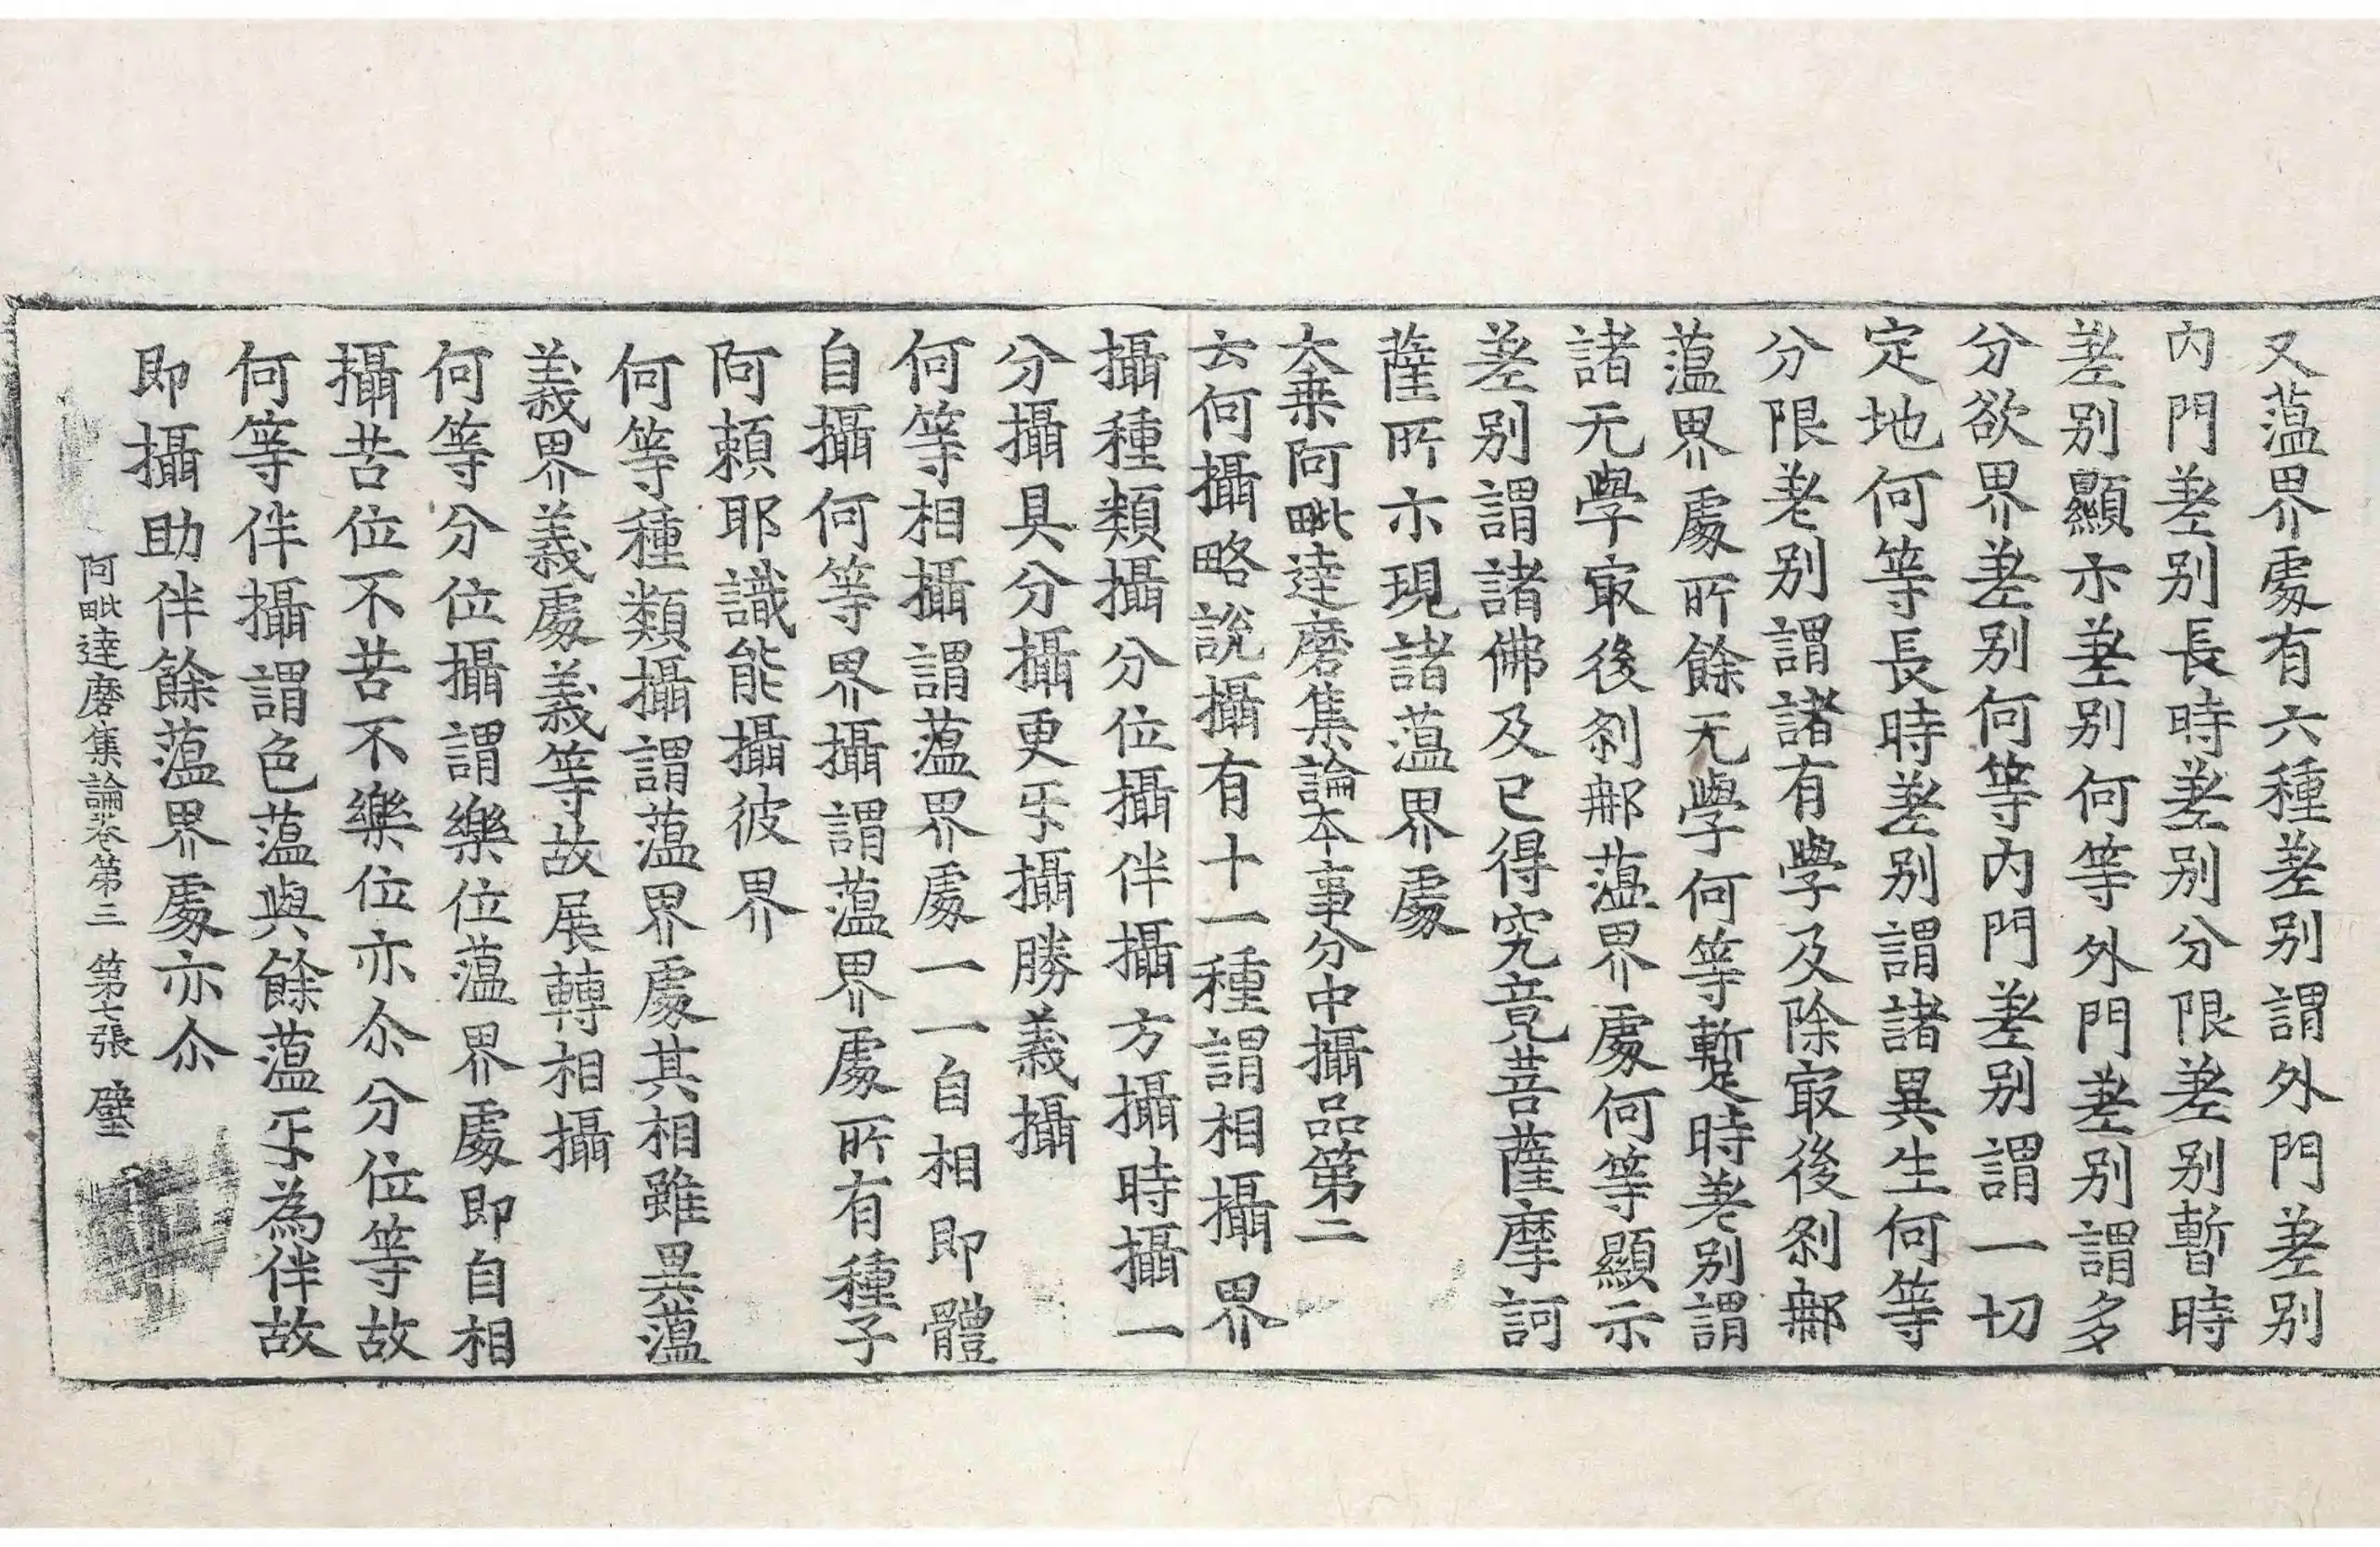 又蕰界處有六種差别謂外門差别
内門差别長時差别分限差别暫時
差别顯示差别何等外門差别謂多
分欲界差别何等内門差别謂一切
定地何等長時差别謂諸異生何等
分限差别謂諸有學及除㝡後刹那
蕰界處所餘无學何等暫時差别謂
諸无學㝡後刹那蕰界處何等顯示
差别謂諸佛及已得究竟菩薩摩訶
薩所示現諸蕰界處
大乗阿毗達磨集論本事分中攝品第二
云何攝略説攝有十一種謂相攝界
攝種類攝分位攝伴攝方攝時攝一
分攝具分攝更㸦攝勝義攝
何等相攝謂蕰界處一一自相即體
自攝何等界攝謂蕰界處所有種子
阿頼耶識能攝彼界
何等種類攝謂蕰界處其相雖異蕰
義界義處義等故展轉相攝
何等分位攝謂樂位蕰界處即自相
攝苦位不苦不樂位亦尒分位等故
何等伴攝謂色蕰與餘蕰㸦為伴故
即攝助伴餘蕰界處亦尒
阿毗達磨集論卷第三 第七張 璧